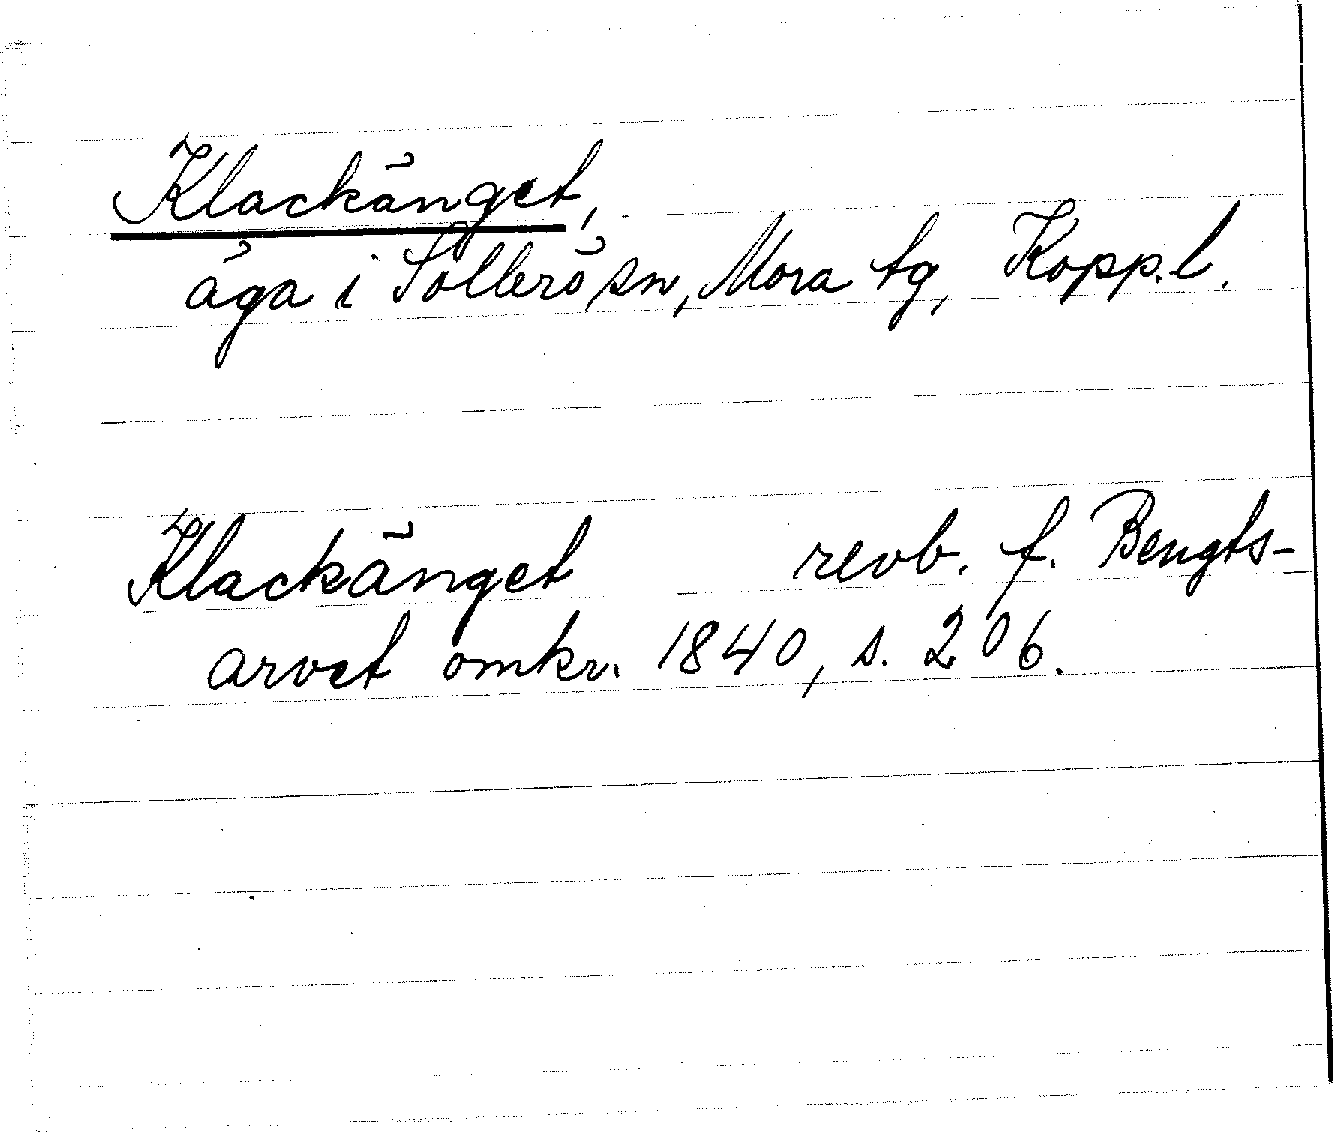 Klackänget,
äga i Sollerö sn, Mora tg, Kopp. l.
Klackänget revb. f. Bengts-
arvet omkr. 1840, s. 206.